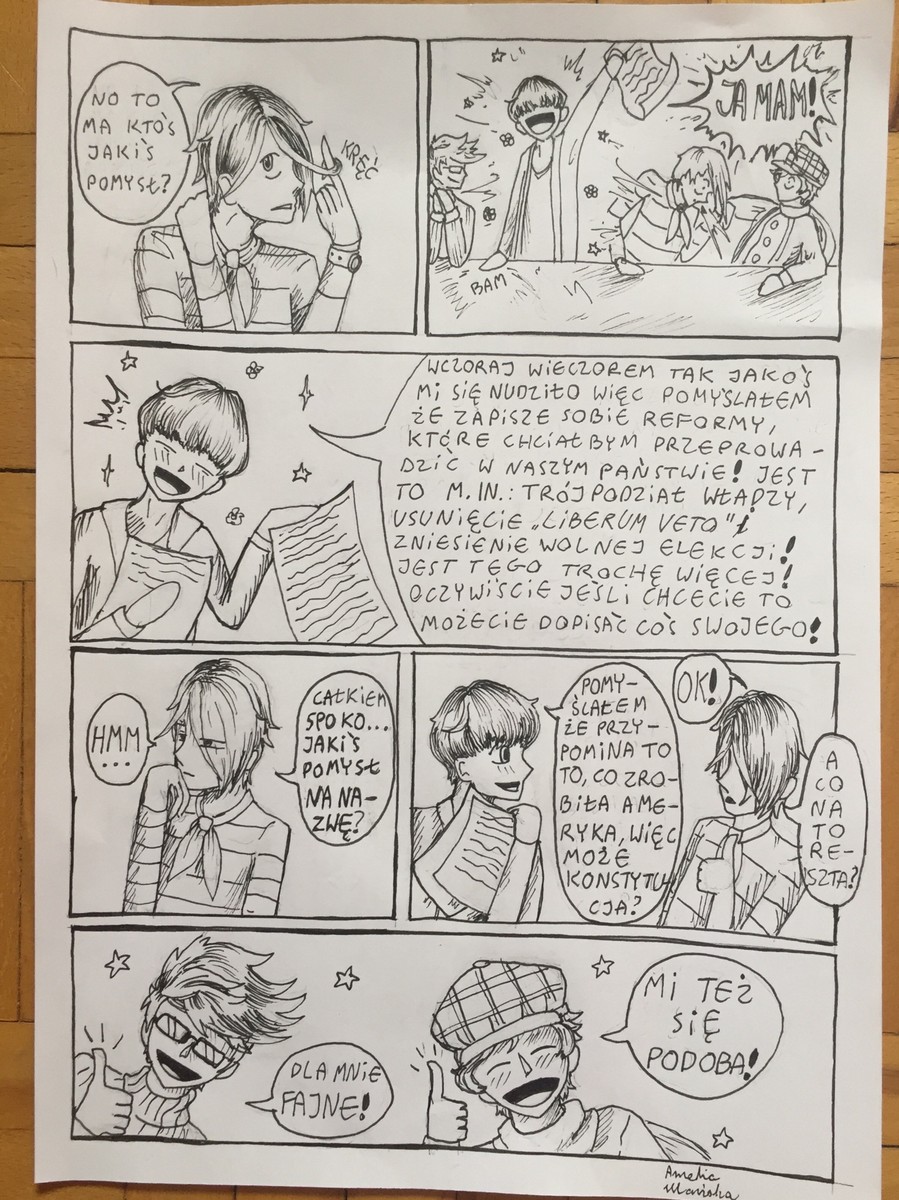 NO TO
MA KTOŚ
JAKIŚ
POMYSŁ?
KRĘCI
JA MAM!
BAM
WCZORAJ WIECZOREM TAK JAKOŚ
MI SIĘ NUDZIŁO WIĘC POMYŚLAŁEM
ŻE ZAPISZE SOBIE REFORMY,
KTÓRE CHCIAŁBYM PRZEPROWA-
DZIĆ W NASZYM PAŃSTWIE! JEST
TO M.IN.: TRÓJPODZIAŁ WŁADZY,
USUNIĘCIE „LIBERUM VETO" I
ZNIESIENIE WOLNEJ ELEKCJI!
JEST TEGO TROCHĘ WIĘCEJ!
OCZYWIŚCIE JEŚLI CHCECIE TO
MOŻECIE DOPISAĆ COŚ SWOJEGO!
HMM
...
CAŁKIEM
SPOKO...
JAKIŚ
POMYSŁ
NA NA-
ZWĘ?
POMY-
ŚLAŁEM
ŻE PRZY-
POMINA TO
TO, CO ZRO-
BIŁA AME-
RYKA, WIĘC
MOŻE
KONSTYTU-
CJA?
OK!
A
CO
NA
TO
RE-
SZTA?
DLA MNIE
FAJNE!
MI TEŻ
SIĘ
PODOBA!
Amelia